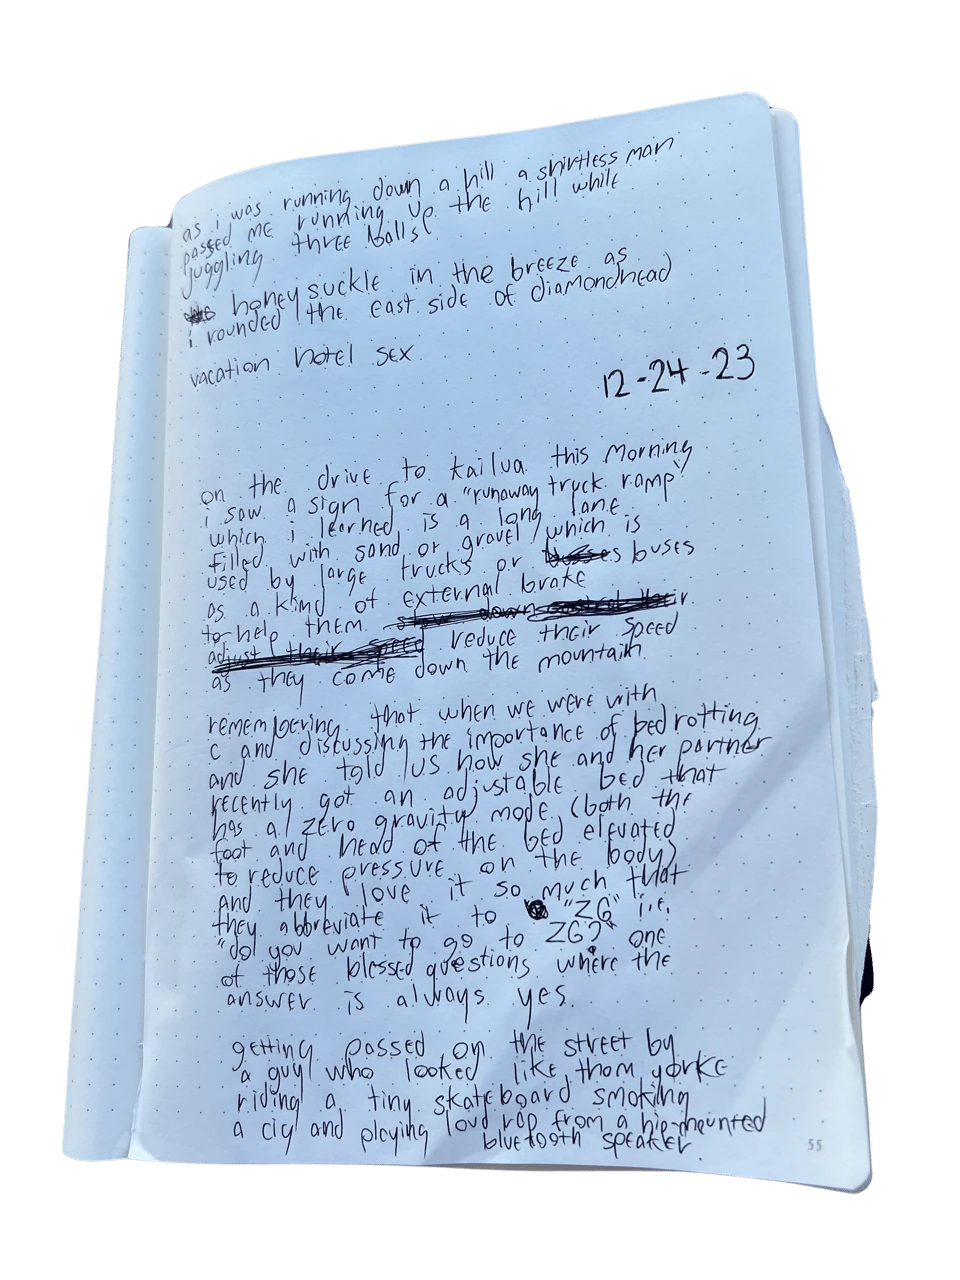 as i was running down a hill a shirtless man
passed me running up the hill while
juggling three balls
honeysuckle in the breeze as
i rounded the east side of diamondhead
vacation hotel sex
12-24-23
on the drive to kailua this morning
i saw a sign for a "runaway truck ramp"
which i learned is a long lane
filled with sand or gravel which is
used by large trucks or busses buses
as a kind of external brake
to help them slow down control their
adjust their speed reduce their speed
as they come down the mountain
remembering that when we were with
c and discussing the importance of bedrotting
and she told us how she and her partner
recently got an adjustable bed that
has a zero gravity mode (both the
foot and head of the bed elevated
to reduce pressure on the body)
and they love it so much that
they abbreviate it to "ZG" i.e.
"do you want to go to ZG?" one
of those blessed questions where the
answer is always yes.
getting passed on the street by
a guy who looked like thom yorke
riding a tiny skateboard smoking
a cig and playing loud rap from a hip-mounted
bluetooth speaker
55